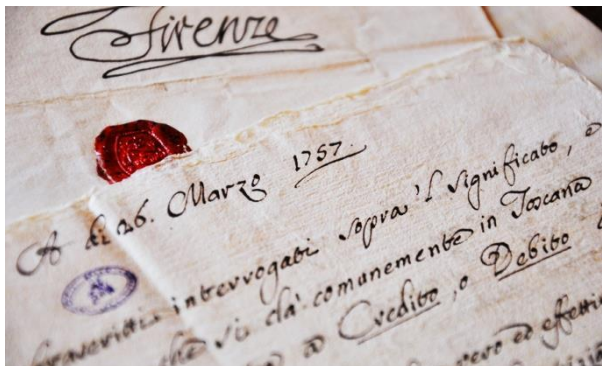 Firenze
A di 26. Marzo 1757.
interrogati sopra 'l significato, e
che si dà comunemente in Toscana
a Credito, o Debito
vero ed effetti